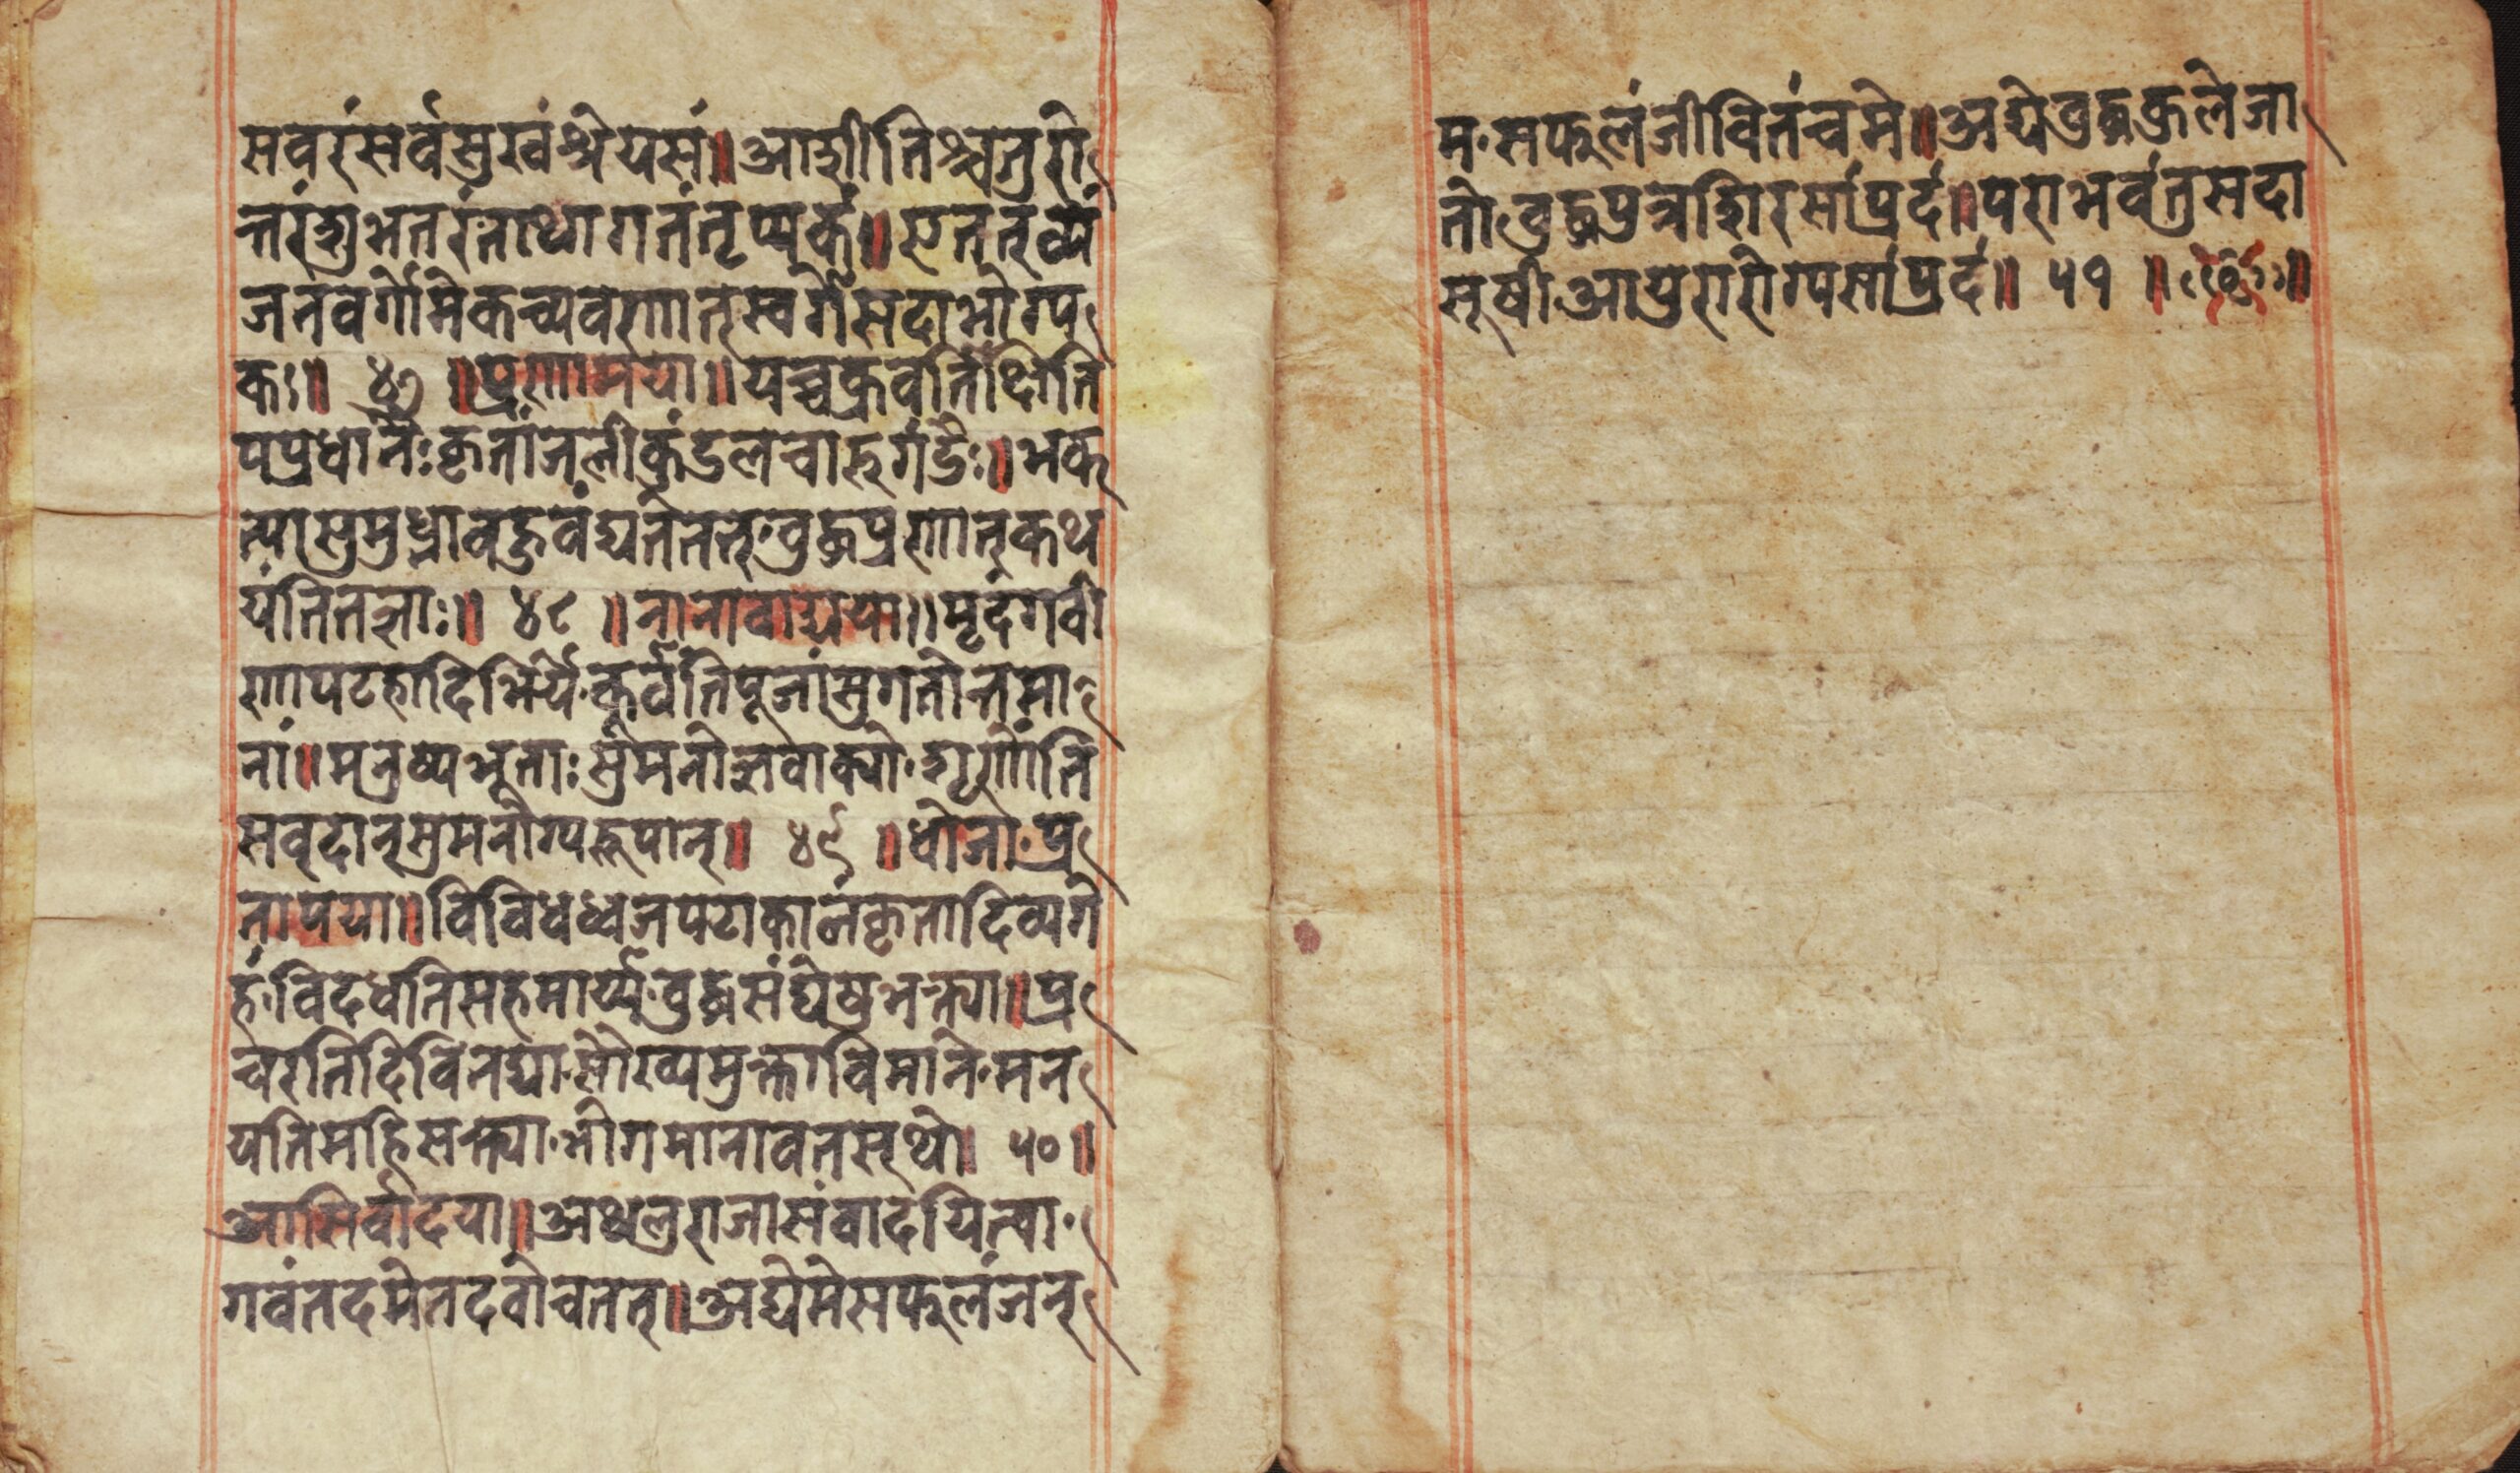 सवरंसर्वसुखंश्रेयसं॥आशीतिश्चतुरो
न्तरंशुभतरंनाथागतंतृप्यकं॥एतत्तव्यं
जनवर्गोमेकच्यवराातस्वर्गेसदाभोग्य
कः॥ ४७ ॥प्रराामया॥यच्चक्रवर्तिक्षिति
पप्रधानैःकृतांजलीकुंडलचारुगंडैः॥भक
त्यासुमुध्नावहुवंद्यनंतेन्तबुद्धप्रराातकथ
यंतितज्ञाः॥ ४८ ॥नानावाद्यया॥मृदंगवी
राापटहादिभिर्ये·कुर्वंतिपूजांसुगतोत्तमा
नां॥मनुष्यभूताःसुमनोज्ञवाक्यो·शृराोंति
सवदानसुमनोग्यरूपान्॥ ४९ ॥धोजा·प्र
तापया॥विविधध्वजपटाकालंकृतादिव्यगे
हं·विदधतिसहमार्य्य·बुद्धसंघेषुभक्त्या॥प्र
चरतिदिविनद्या·सौख्यमुक्ताविमाने·मन
यतिमहिसक्त्या·भोगमानावनसूथो॥ ५० ॥
आसिर्वादया॥अथलुराजासंवादयित्वा·
गवंतदमेतदवोचतत्॥अद्यमेसफुलंजन्
म·सफुलंजीवितंचमे॥अद्येबुद्धकुलेजा
तो·बुद्धपुत्रङ्गिरसांप्रदं॥पराभवंतुसदा
सूषी·आयुरारोग्यसांप्रदं॥ ५१ ॥